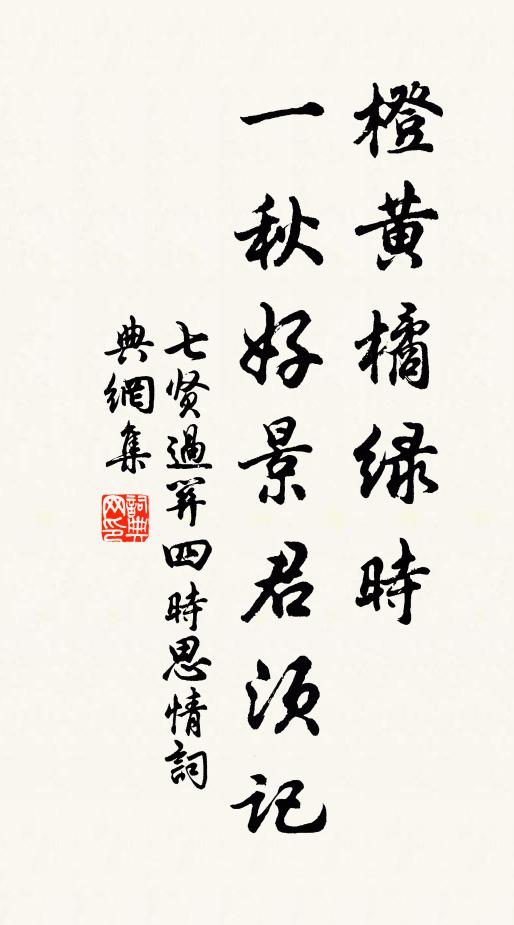 橙黄橘緑時
一秋好景君須記
七贤過關四時思情詞
典網集
詞典网印